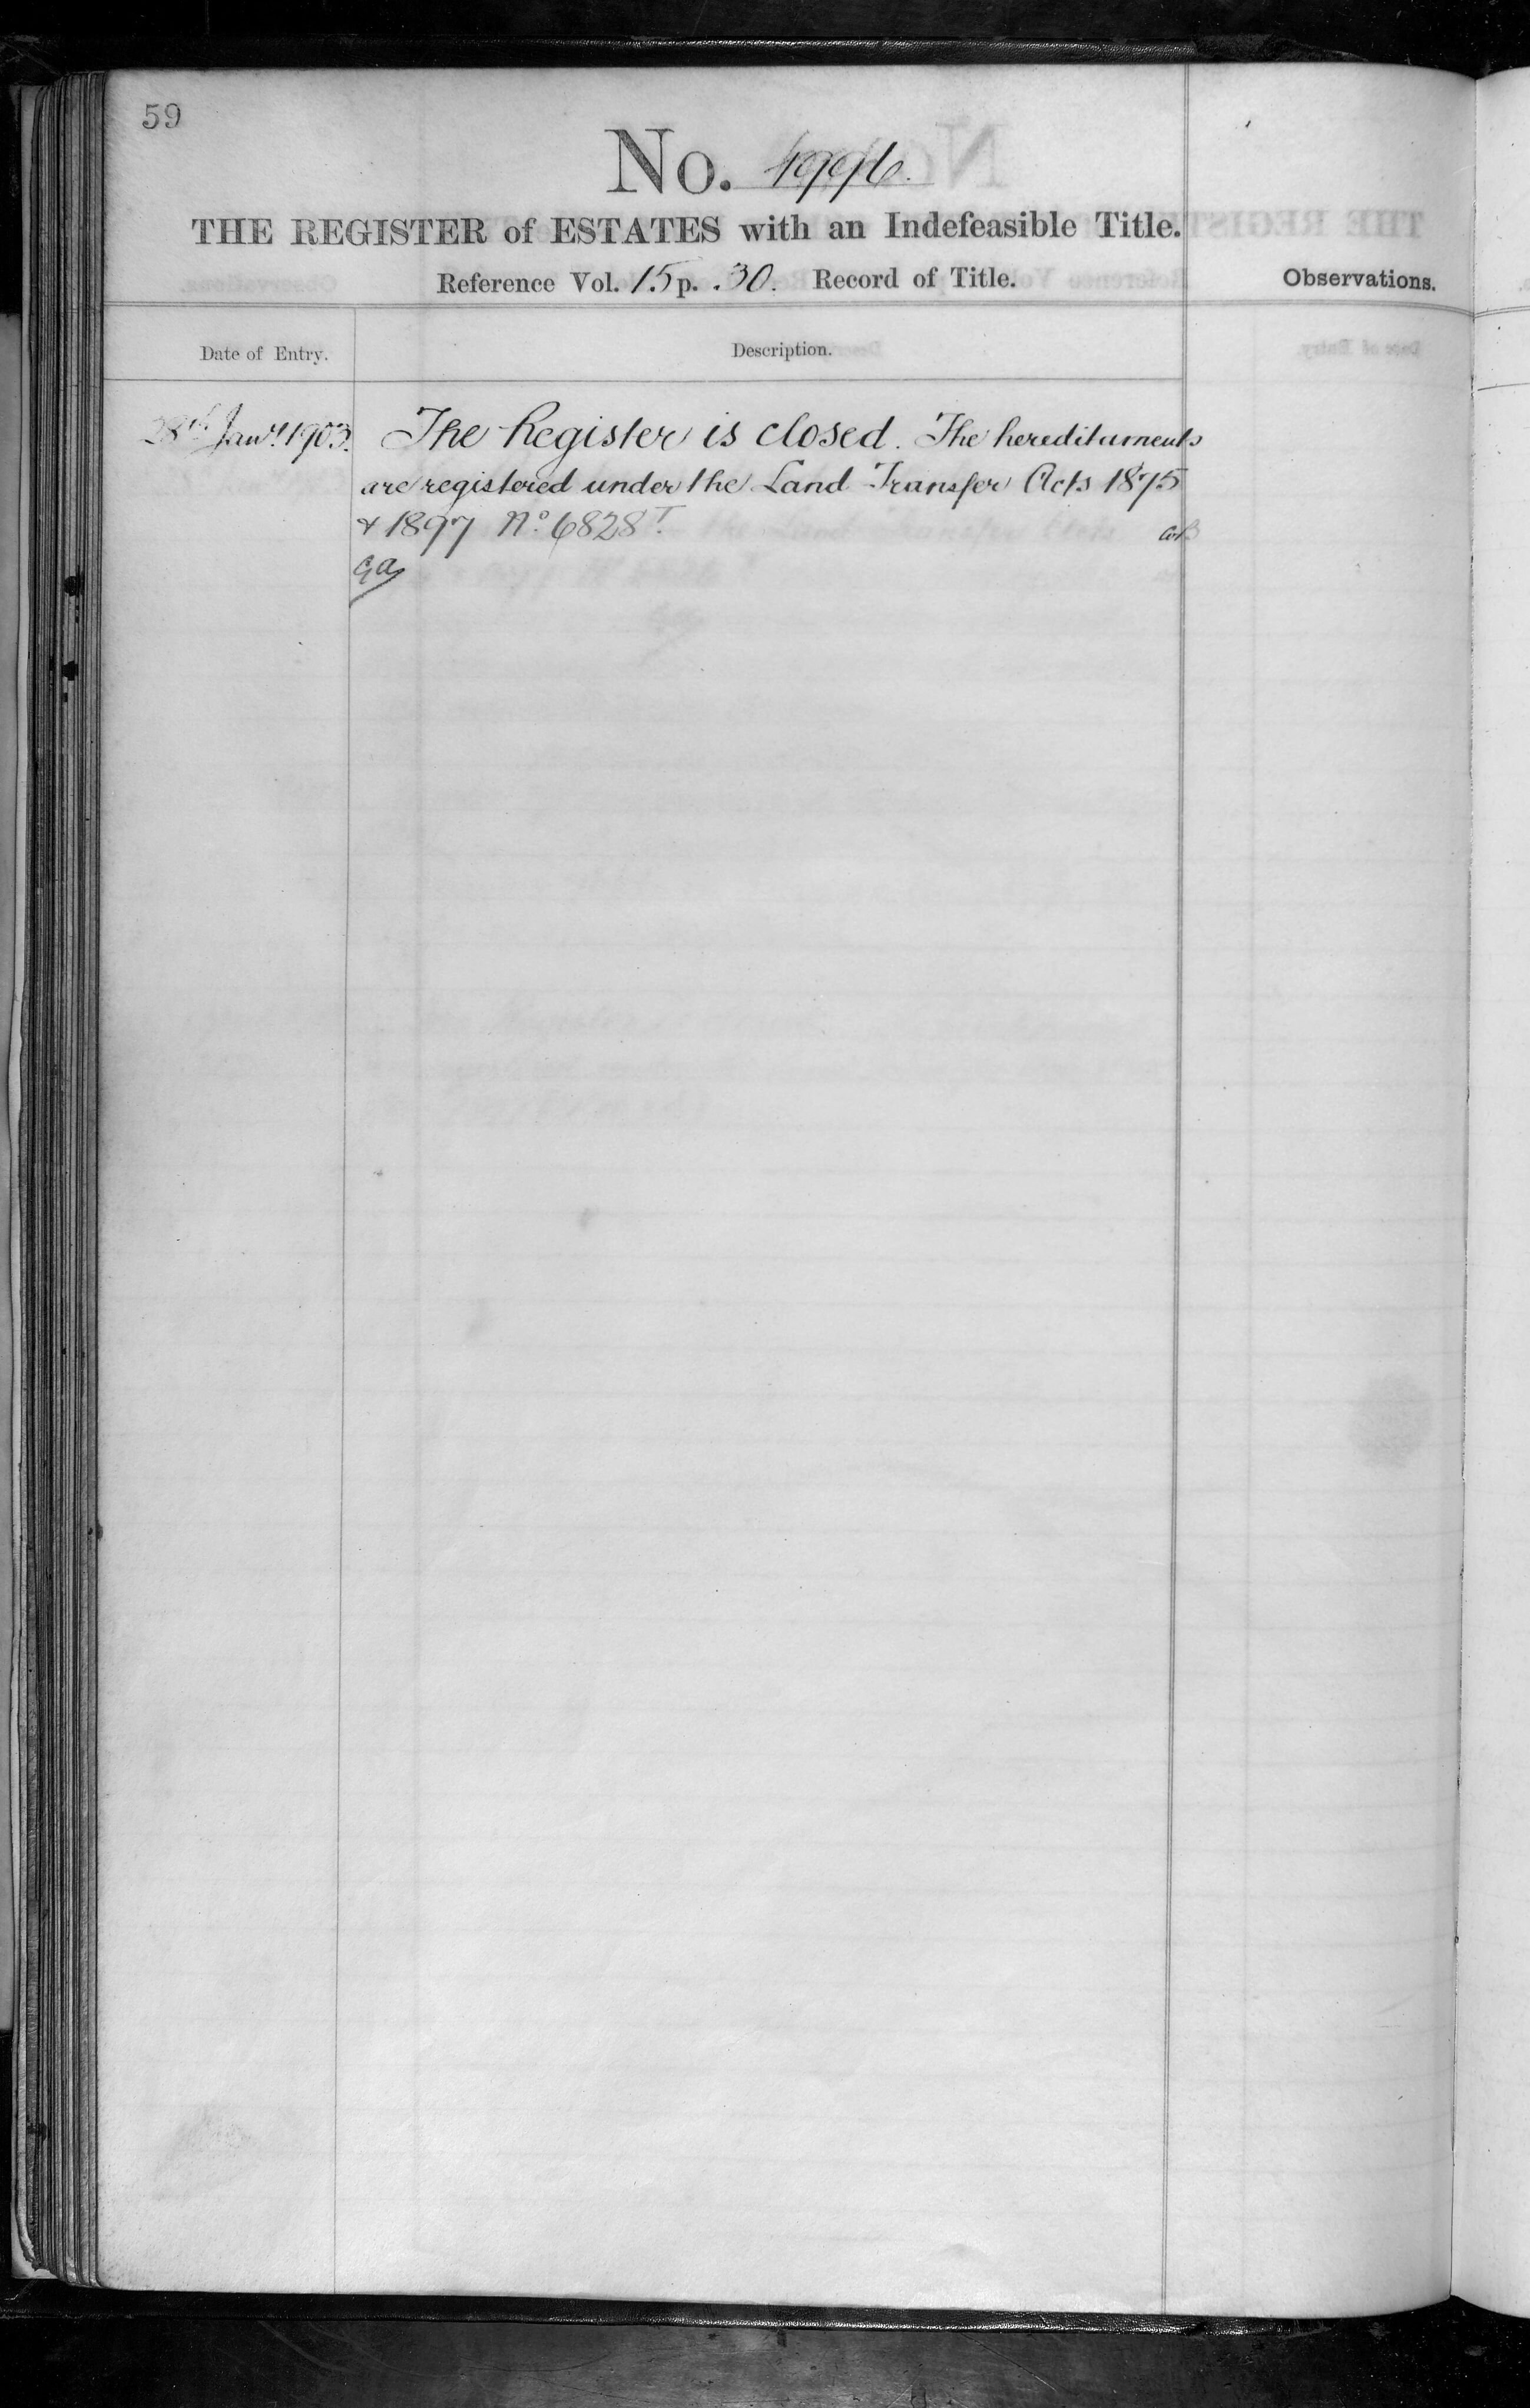 59
No. 1996.
THE REGISTER of ESTATES with an Indefeasible Title.
Reference Vol. 15 p. 30. Record of Title.
Observations.
Date of Entry.
Description.
28th Jany. 1903. The Register is closed. The hereditaments
are registered under the Land Transfer Acts 1875
& 1897 No. 6828 T.
GA